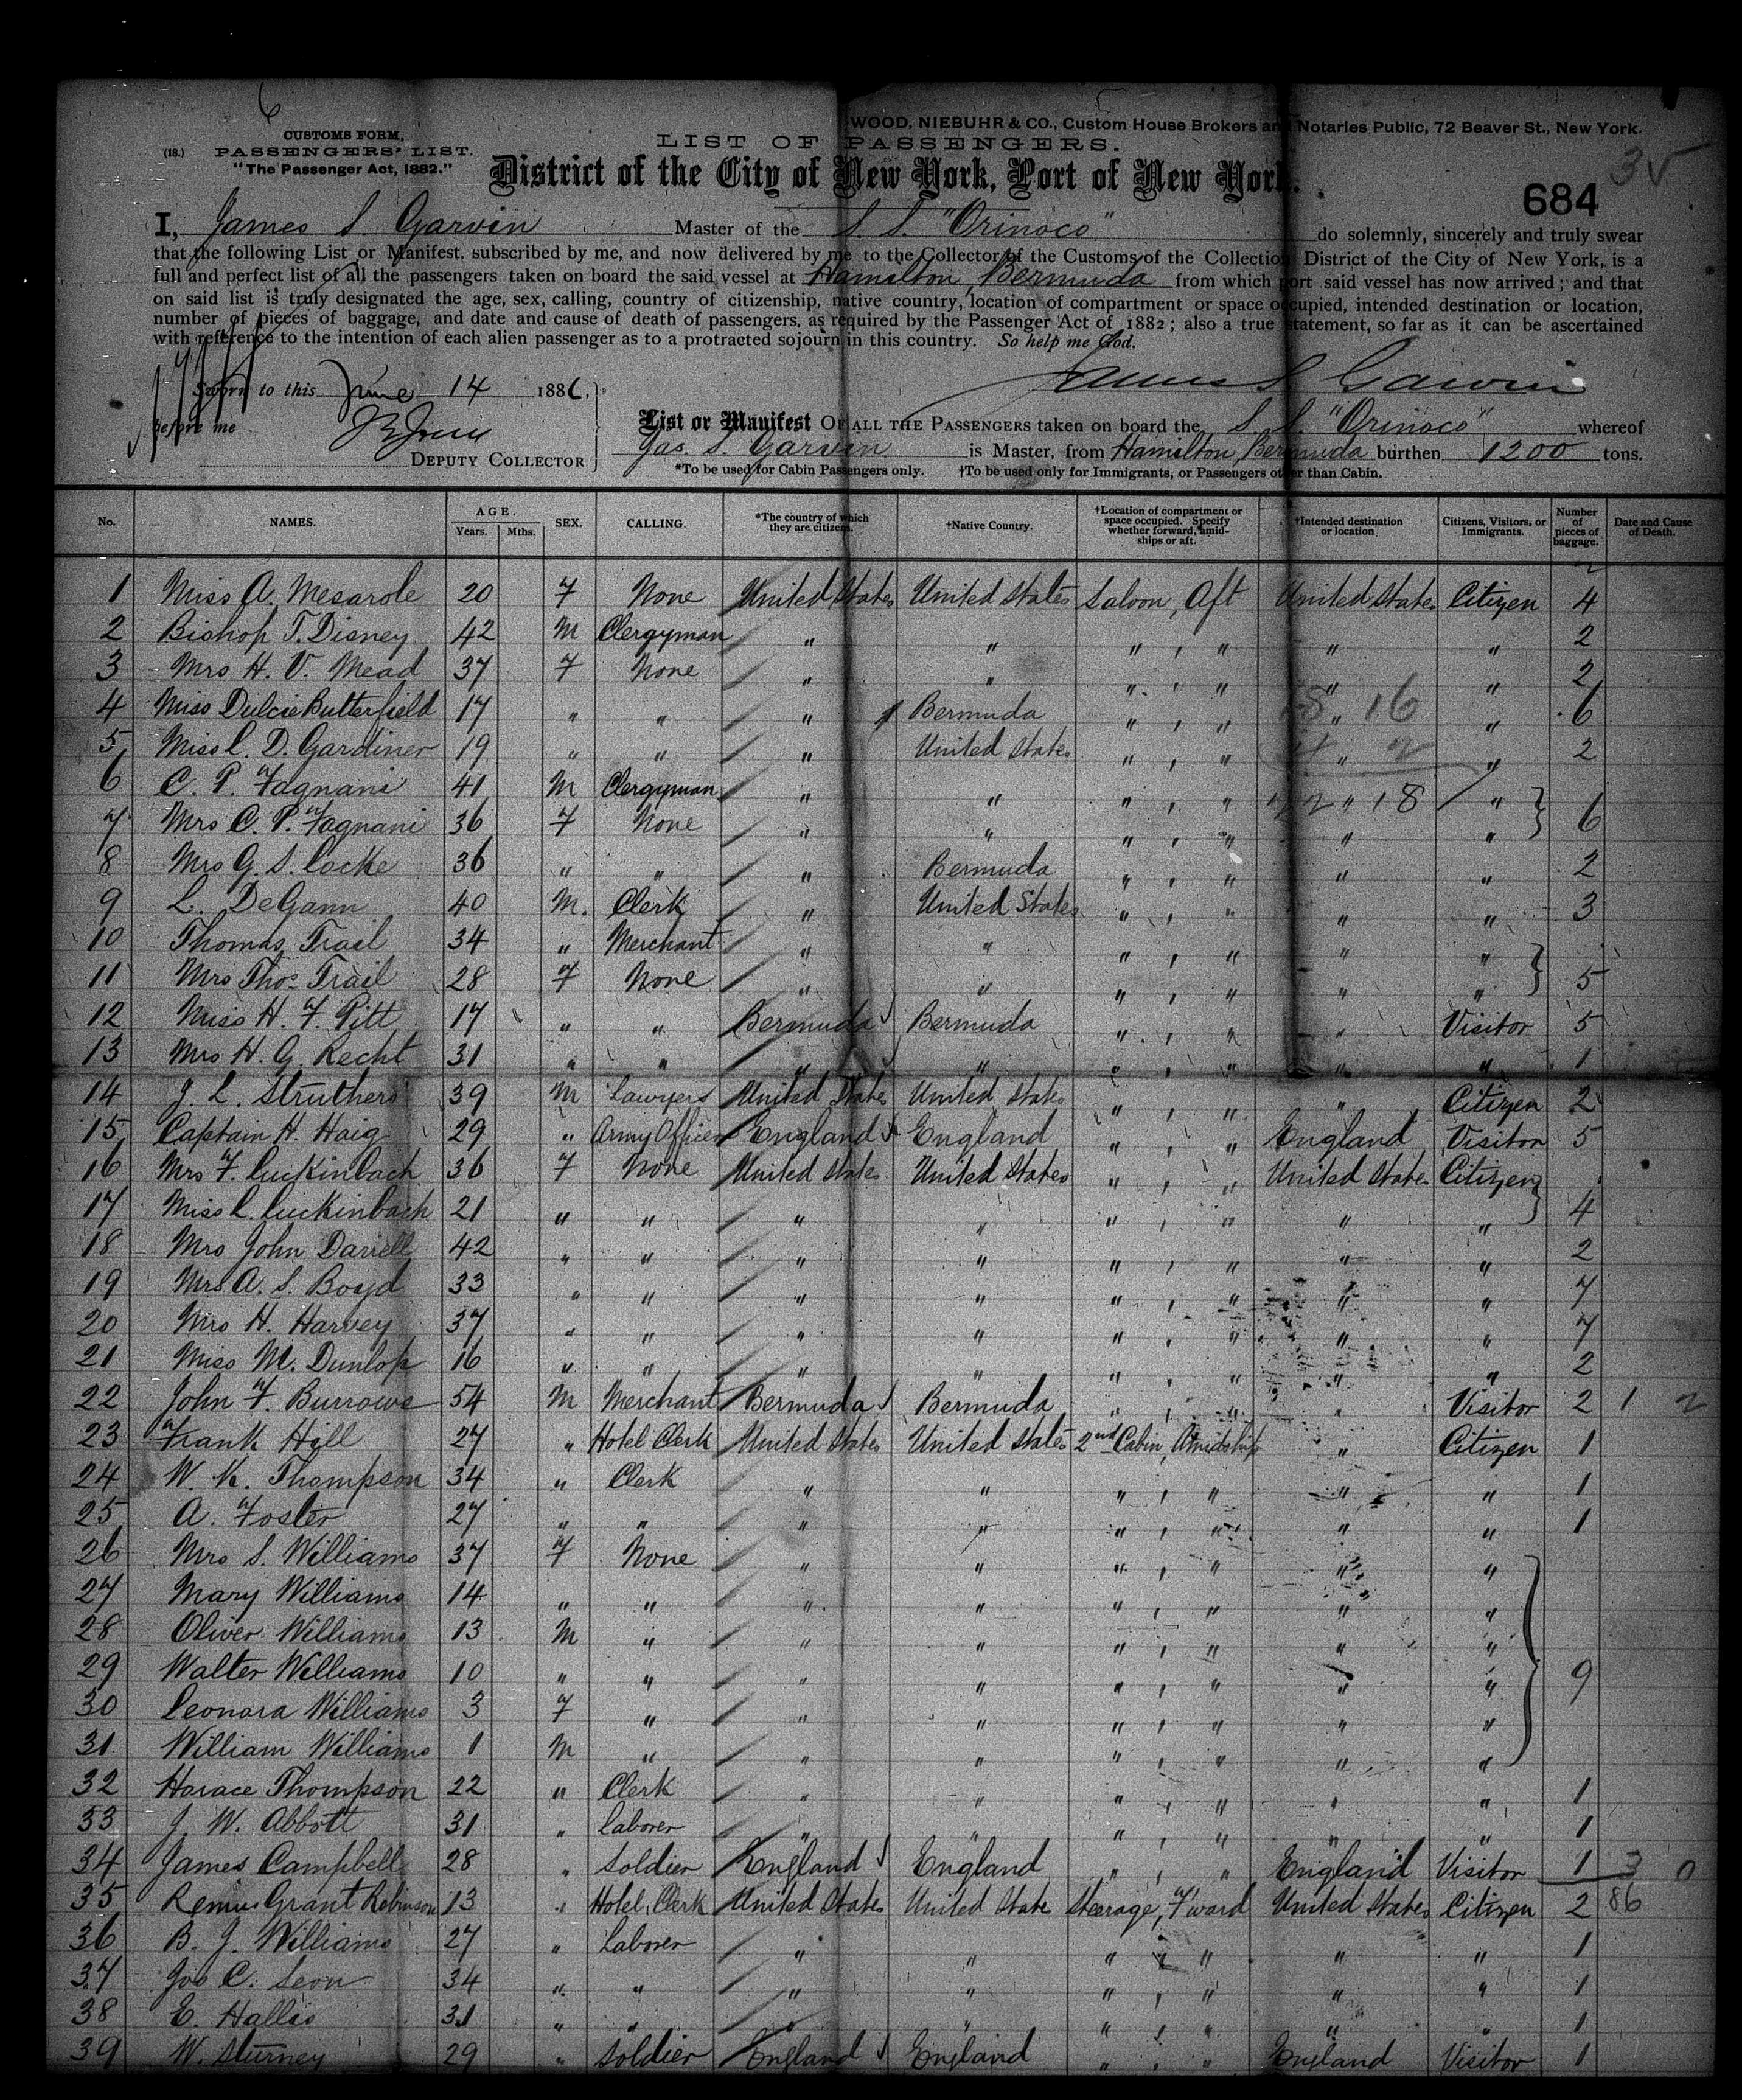 6
WOOD, NIEBUHR & CO., Custom House Brokers and Notaries Public, 72 Beaver St., New York.
CUSTOMS FORM,
(18.) PASSENGERS' LIST.
"The Passenger Act, 1882."
LIST OF PASSENGERS.
District of the City of New York, Port of New York.
684
I, James S. Garvin Master of the S. S. "Orinoco" do solemnly, sincerely and truly swear
that the following List or Manifest, subscribed by me, and now delivered by me to the Collector of the Customs of the Collection District of the City of New York, is a
full and perfect list of all the passengers taken on board the said vessel at Hamilton, Bermuda from which port said vessel has now arrived; and that
on said list is truly designated the age, sex, calling, country of citizenship, native country, location of compartment or space occupied, intended destination or location,
number of pieces of baggage, and date and cause of death of passengers, as required by the Passenger Act of 1882; also a true statement, so far as it can be ascertained
with reference to the intention of each alien passenger as to a protracted sojourn in this country. So help me God.
James S Garvin
Sworn to this June 14 1886,
before me
DEPUTY COLLECTOR
List or Manifest OF ALL THE PASSENGERS taken on board the S. S. "Orinoco" whereof
Jas. S. Garvin is Master, from Hamilton, Bermuda burthen 1200 tons.
*To be used for Cabin Passengers only. †To be used only for Immigrants, or Passengers other than Cabin.
No. NAMES. AGE. Years. Mths. SEX. CALLING. *The country of which they are citizens. †Native Country. †Location of compartment or space occupied. Specify whether forward, amidships or aft. †Intended destination or location Citizens, Visitors, or Immigrants. Number of pieces of baggage. Date and Cause of Death.
1 Miss A. Mesarole 20 F None United States United States Saloon, Aft United States Citizen 4
2 Bishop T. Disney 42 M Clergyman " " " , " " " 2
3 Mrs H. V. Mead 37 F None " " " , " " " 2
4 Miss Dulcie Butterfield 17 " " " Bermuda " , " " " 6
5 Miss C. D. Gardiner 19 " " " United States " , " " " 2
6 C. P. Fagnani 41 M Clergyman " " " , " " "
7 Mrs C. P. Fagnani 36 F None " " " , " " " 6
8 Mrs G. S. Cocke 36 " " " Bermuda " , " " " 2
9 L. DeGann 40 M. Clerk " United States " , " " " 3
10 Thomas Trail 34 " Merchant " " " , " " "
11 Mrs Thos Trail 28 F None " " " , " " " 5
12 Miss H. F. Pitt 17 " " Bermuda Bermuda " , " " Visitor 5
13 Mrs H. G. Recht 31 " " " " " , " " " 1
14 J. L. Struthers 39 M Lawyers United States United States " , " " Citizen 2
15 Captain H. Haig 29 " Army Officer England England " , " England Visitor 5
16 Mrs F. Luckinbach 36 F None United States United States " , " United States Citizen
17 Miss L. Luckinbach 21 " " " " " , " " " 4
18 Mrs John Darrell 42 " " " " " , " " " 2
19 Mrs A. S. Boyd 33 " " " " " , " " " 7
20 Mrs H. Harvey 37 " " " " " , " " " 7
21 Miss M. Dunlop 16 " " " " " , " " " 2
22 John F. Burrows 54 M Merchant Bermuda Bermuda " , " " Visitor 2 1 2
23 Frank Hill 27 " Hotel Clerk United States United States 2nd Cabin, Amidship " Citizen 1
24 W. K. Thompson 34 " Clerk " " " , " " " 1
25 A. Foster 27 " " " " " , " " " 1
26 Mrs S. Williams 37 F None " " " , " " "
27 Mary Williams 14 " " " " " , " " "
28 Oliver Williams 13 M " " " " , " " "
29 Walter Williams 10 " " " " " , " " " 9
30 Leonora Williams 3 F " " " " , " " "
31 William Williams 1 M " " " " , " " "
32 Horace Thompson 22 " Clerk " " " , " " " 1
33 J. W. Abbott 31 " Laborer " " " , " " " 1
34 James Campbell 28 " Soldier England England " , " England Visitor 1 3 0
35 Remus Grant Robinson 13 " Hotel Clerk United States United State Steerage, F'ward United States Citizen 2 86
36 B. J. Williams 27 " Laborer " " " , " " " 1
37 Jos C. Seon 34 " " " " " , " " " 1
38 E. Hallis 31 " " " " " , " " " 1
39 W. Sturney 29 " Soldier England England " , " England Visitor 1